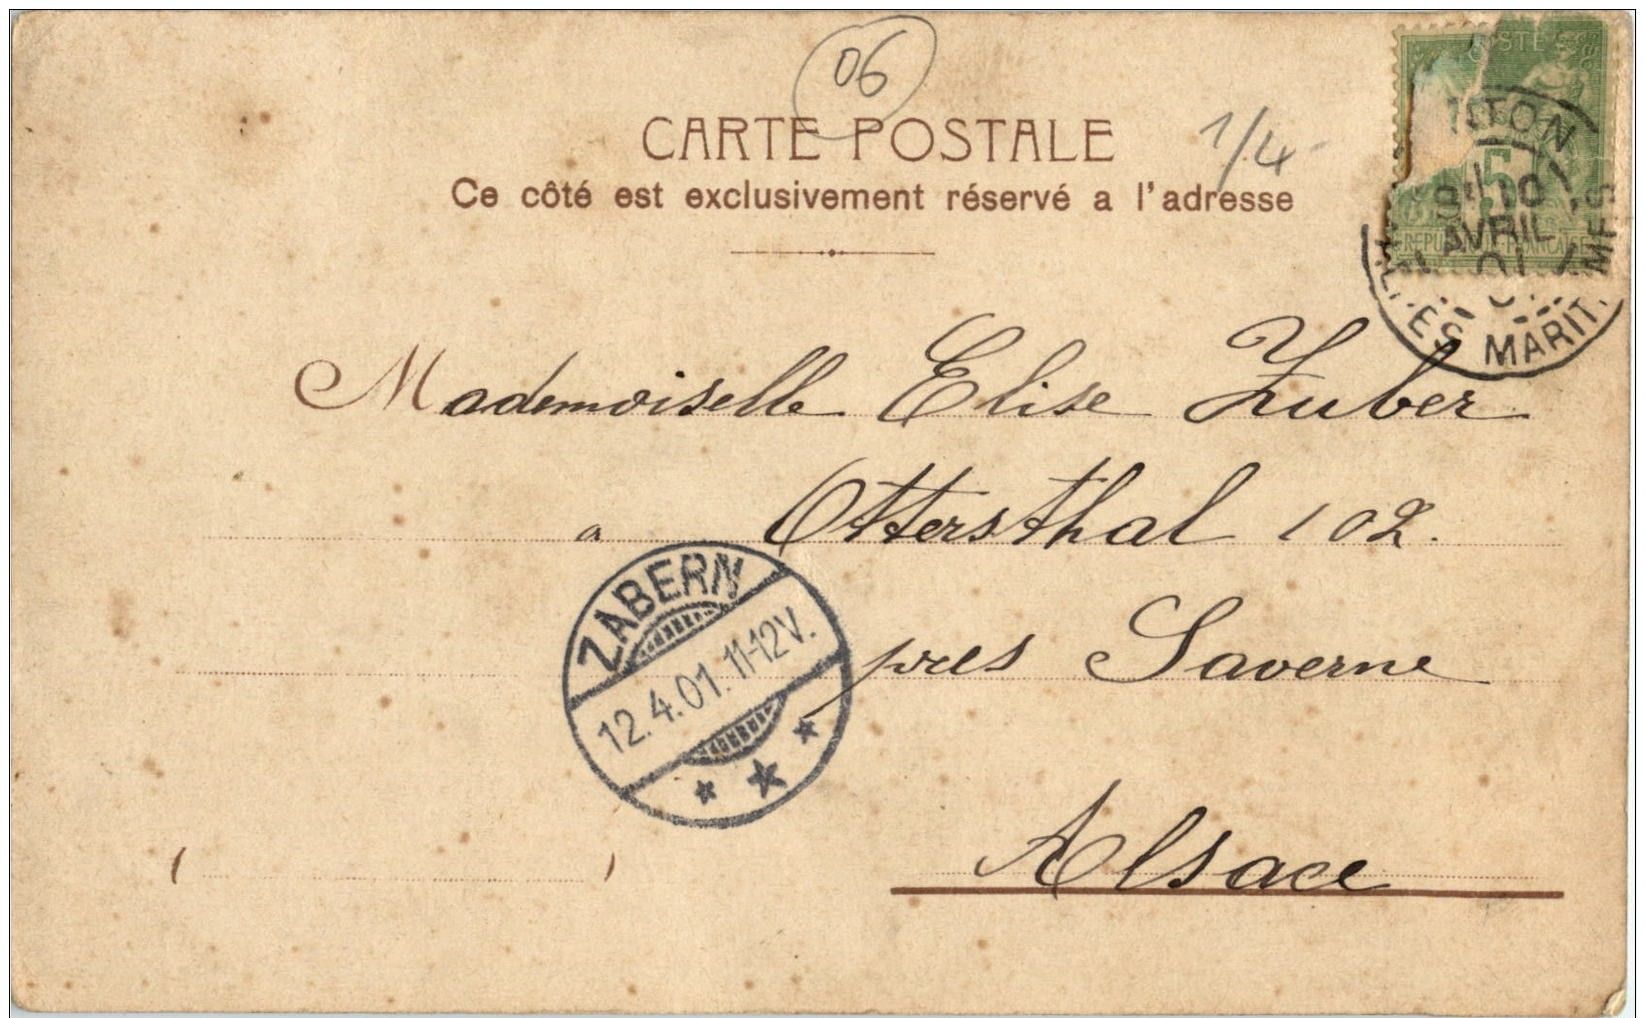 06
CARTE POSTALE
1/4
Ce côté est exclusivement réservé a l'adresse
POSTE
5
REPUBLIQUE FRANCAISE
10
AVRIL
01
MARIT
Mademoiselle Elise Zuber
a Ottersthal 102.
près Saverne
Alsace
ZABERN
12.4.01.11-12V.